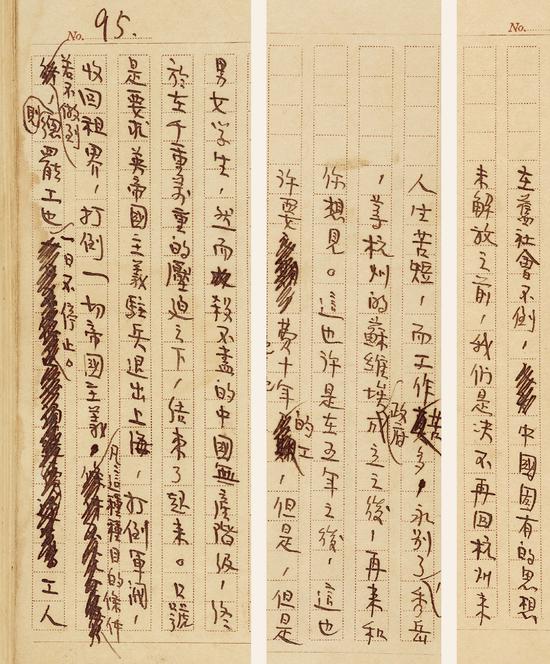 No.
在舊社會不倒，中國固有的思想
未解放之前，我們是決不再回杭州來
人生苦短，而工作苦多，永別了，秀岳
，等杭州的蘇維埃政府成立之後，再來和
你想見。這也許是在五年之後，這也
許要費十年的工，但是，但是
No. 95.
男女学生，然而殺不盡的中國無產階級，終
於在千重萬重的壓迫之下，結束了起來。口號
是要求英帝國主義駐兵退出上海，打倒軍閥，
收回租界，打倒一切帝國主義，凡這種種目的條件
若不做到，則總罷工也一日不停止。工人